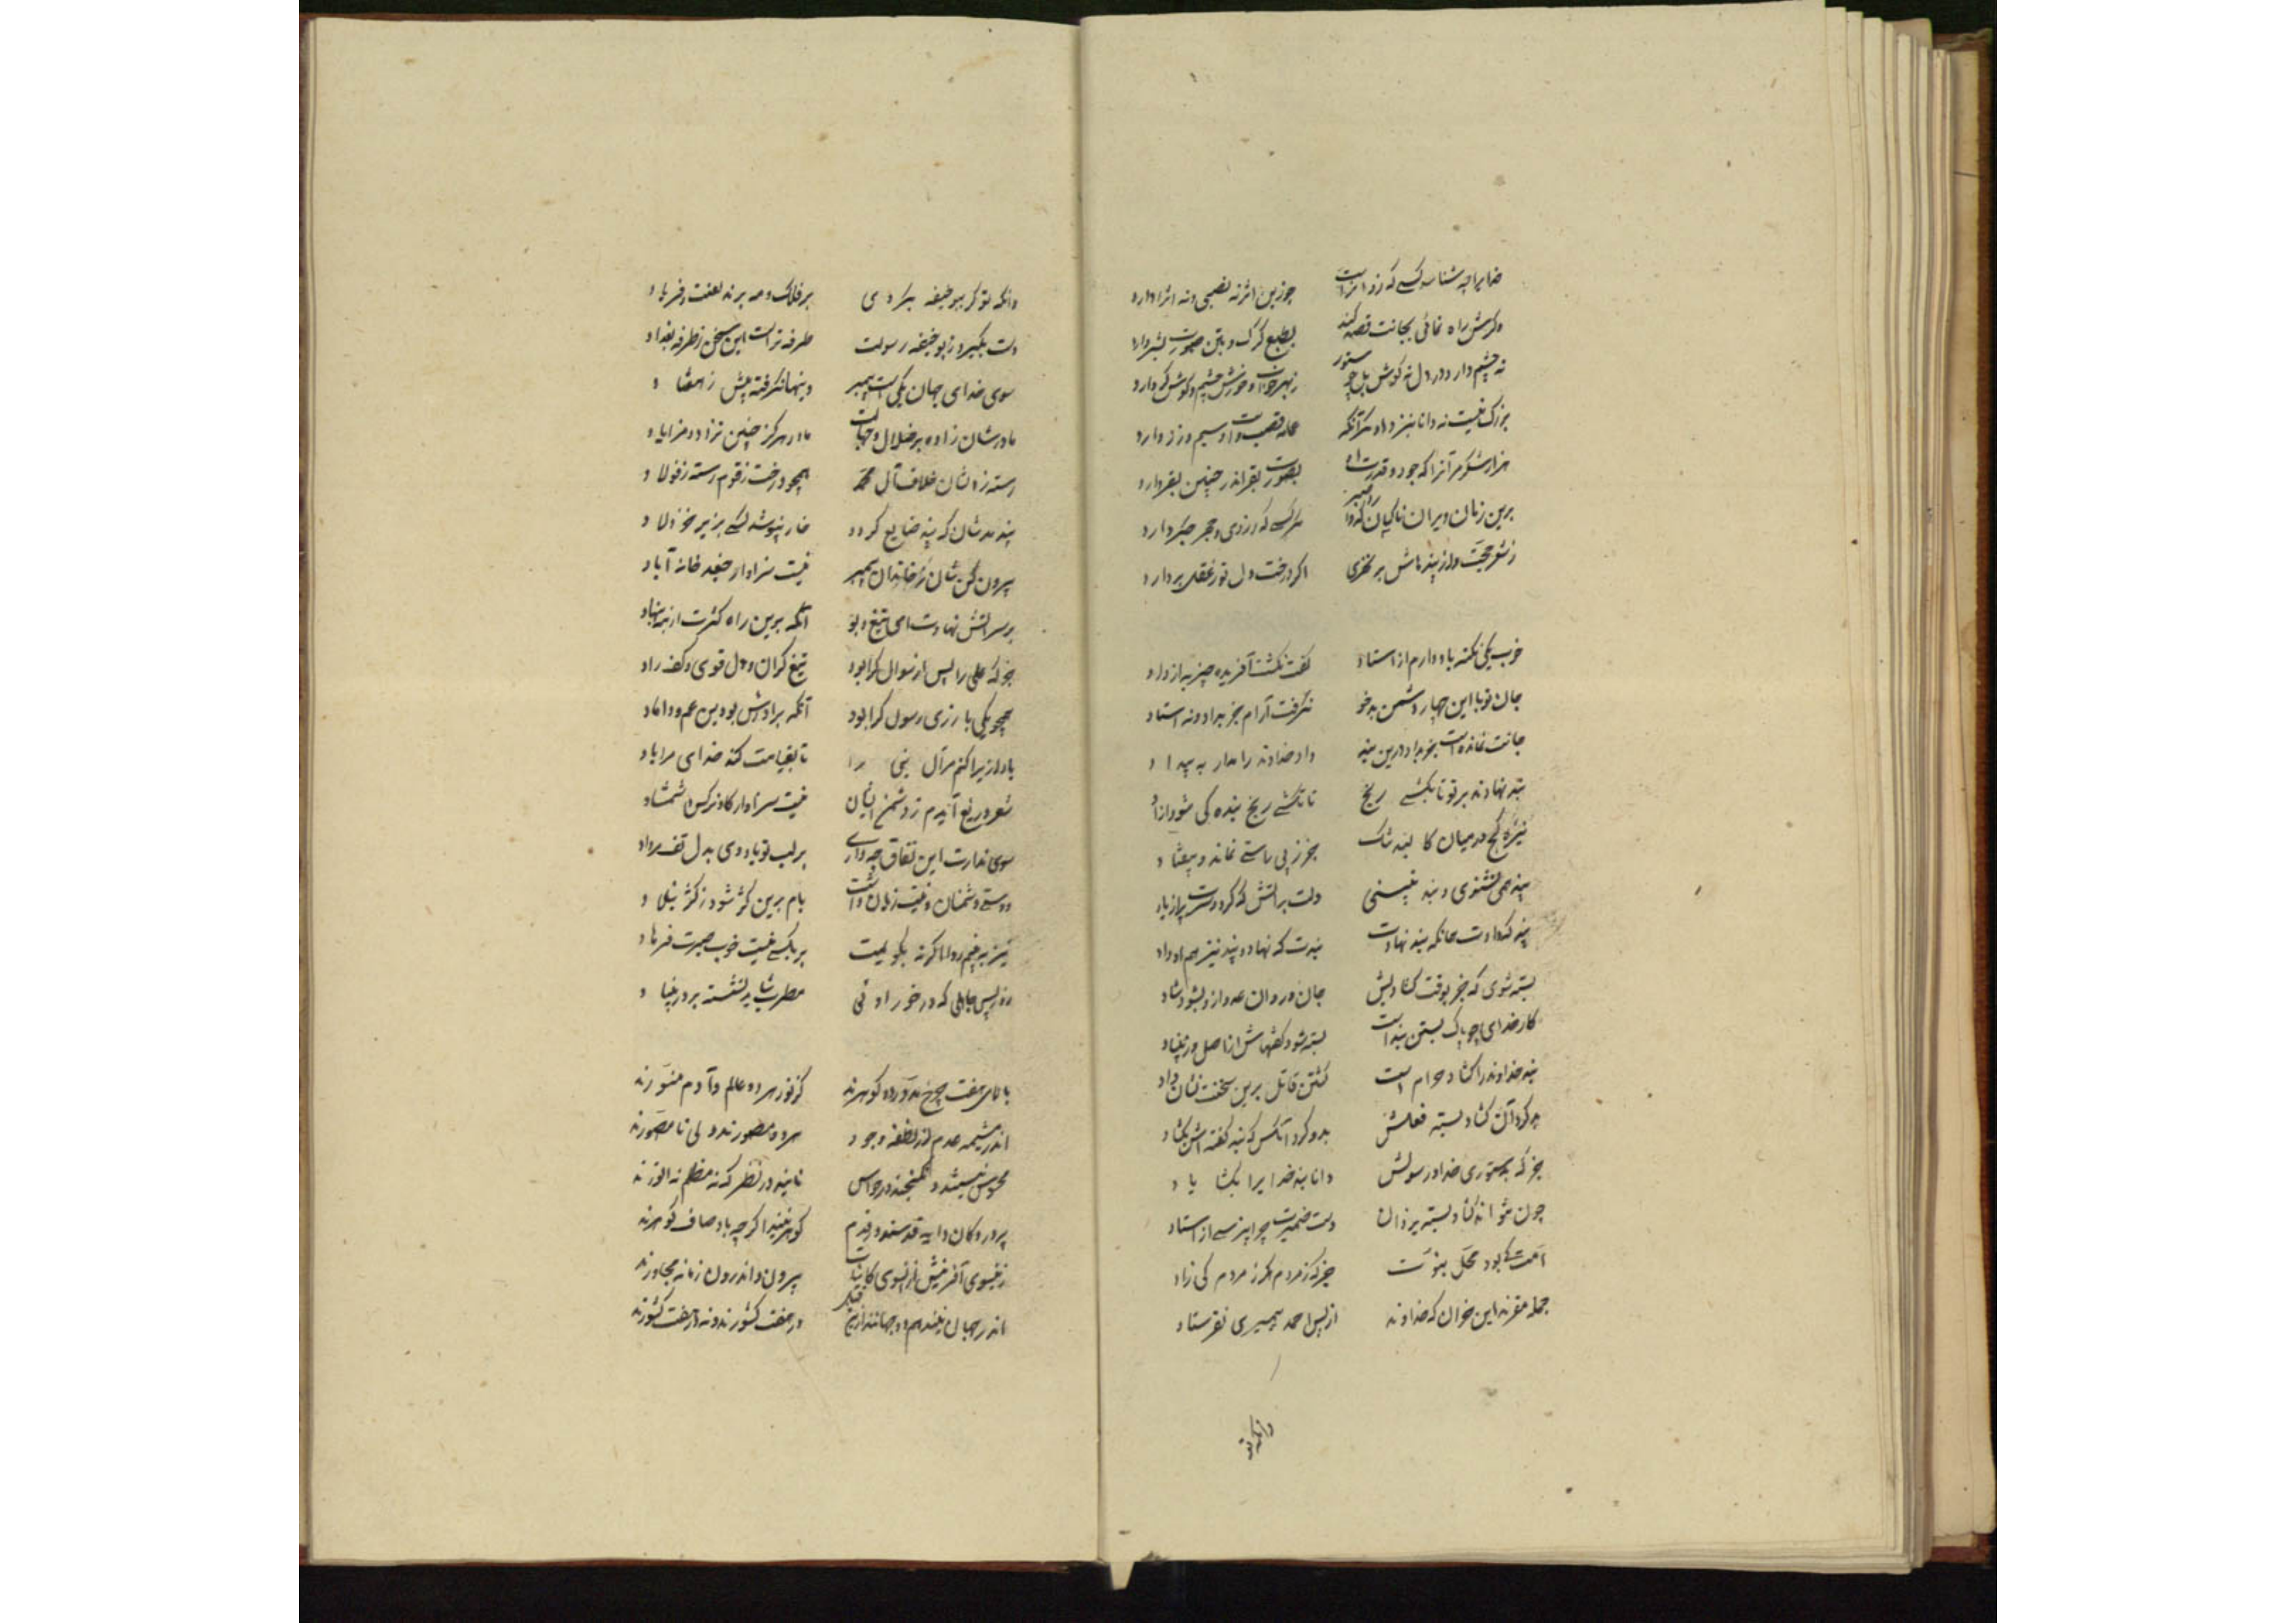 خدایرا چه شناسد کسی که زو اثر است چو زین اثر نه نصیبی و نه اثر دارد
وگرش راه نمائی بجانت قصد کند بطبع گرگ و بتن صورت بشر دارد
نه چشم دارد در دل نه گوش بل چو ستور ز بهر خواب و خورش چشم و گوش کر دارد
بزرگ نیست نه دانا بنزد او مگر آنکه عمامه قصب و اسپ و سیم و زر دارد
هزار شکر مر آنرا که جود و قدرت او بصورت بقر اندر چنین بقر دارد
برین زمان ویران ناکسان که را هر کسی که
ز شعر حجت وز پندهاش بر بخوری اگر درخت دل تو ز عقل بر دارد
خوب یکی نکته یاد دارم ز استاد گفت نگشت آفریده چیز به از داد
جان تو با این چهار دشمن بدخو نگرفت آرام جز بداد و نه استاد
جانت نمانده است جز بداد درین بند داد خداوند را مدار به بیداد
بند نهادند بر تو تا بکشی رنج تا نکشی رنج بنده کی شود آزاد
نیزه کج در میان کالبد تنگ جز ز پی راستی نماند و نیفتاد
پند همی نشنوی و بند نبینی دلت بر آتش که کرد و سرت پر از باد
پند که دادت همانکه بند نهادت بندت که نهاد و پند نیز هم او داد
بسته شوی که جز بوقت گشادنش جان در روان عدو ازو بشود شاد
کار خدای است بستن بند است بسته شود کفشهاش از اصل و ز بنیاد
بند خداوند را گشاد حرام است کشتن قاتل برین سخنت نشان داد
بد کرد آن گشاد بسته فعلش بد و کرد آنکس که بند گفته اش بگشاد
جز که بدستوری خدا و رسولش دانا بند خدایرا نگشایاد
چون نتوانی گشاد بسته یزدان دست ضمیرت چرا نپرسی از استاد
امت کی بود محل نبوت جز که ز مردم هگرز مردم کی زاد
جمله مقرند این خران که خداوند از پس احمد پیمبری نفرستاد
وانکه تو
وانکه تو گر بیو خلیفه بگردی بر فلک و مه برند لعنت و فریاد
دست بگیرد ز بو خلیفه رسولت طرفه تر است این سخن ز طرفه بغداد
سوی خدای جهان یکیست پیمبر وینها بگرفته بیش ز هفتاد
مادرشان زاده بر ضلال و جهالت مادر هرگز چنین نزاد و مزایاد
رسته ز دلشان خلاف آل محمد همچو درخت زقوم رسته ز فولاد
پند مدشان که پند ضایع گردد خار نپوشد کسی بزیر خز و لاد
بیرون کن شان ز خاندان پیمبر نیست سزاوار جغد خانه آباد
بر سر آتش نهادت تبع دیو آنکه برین راه کژت از بنه بنهاد
جز که علی را پس از رسول کرا بود تیغ گران و دل قوی و کف راد
همچو یکی یار زی رسول کرا بود آنکه برادرش بود و بن عم و داماد
یاد از ایرا کنم مر آل نبی را تا بقیامت کند خدای مرا یاد
شعر دریغ آیدم ز دشمن ایشان نیست سزاوار گاو نرگس و شمشاد
سوی نفاق چه داری بر لب تو باد و بدل تف مرداد
دوستی دشمنان دین ات زیان داشت بام برین کژ شود ز کژی بنلاد
نیز نبینم روا اگرنه بگویمت بر بکسی نیست خوب ضرت فرهاد
روز پس جاهلی که درخور او ئی مطرب شاید نشسته بر در نباد
بالای هفت چرخ مدور دو گوهرند کز نور هر دو عالم و آدم منورند
اندر مشیمه عدم از نطفه وجود هر دو مصورند ولی نامصورند
محسوس نیستند و نگنجند در حواس نایند در نظر که نه مظلم نه انورند
پروردگان دایه قدسند در قدم گوهر نیند اگرچه باوصاف گوهرند
زینسوی آفرینش و زانسوی کاینات بیرون و اندرون زمانه مجاورند
اندر جهان نیند هم و در جهان در هفت کشورند و نه در هفت کشورند